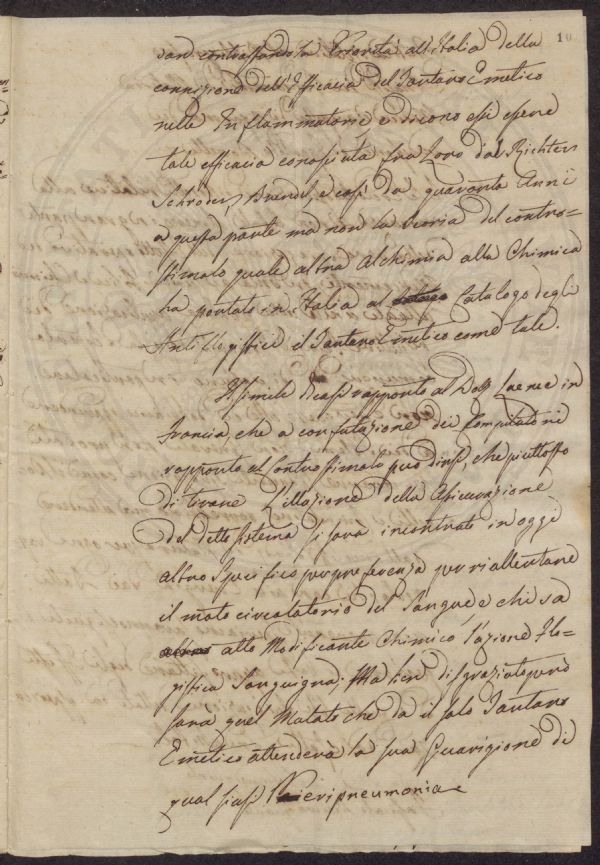 10
van contrastando la Priorità all'Italia della
cognizione dell'Efficacia del Tartaro Emetico
nelle Inflammatorie e dicono essi essere
tale efficacia conosciuta fra Loro dal Richter
Schröder, Brendel, e così da quaranta Anni
a questa parte ma non la teoria del contro=
stimolo quale altra Alchimia alla Chimica
ha portato in Italia al Catalogo degli
Antiflogistici il Tartaro Emetico come tale.
Il simile dicasi rapporto al Dott Laenec in
Francia, che a confutazione dei
rapporto al Controstimolo può dirsi, che piuttosto
di tirare l'illazione della Assicurazione
del detto sistema si sarà incontrato in oggi
altro Specifico per preferenza per riallentare
il moto circolatorio del Sangue e chi sa
atto Modificante Chimico l'azione Flo=
gistica Sanguigna. Ma ben disgraziato però
sarà quel Malato che da il solo Tartaro
Emetico attenderà la sua Guarigione di
qual siasi Peripneumonia